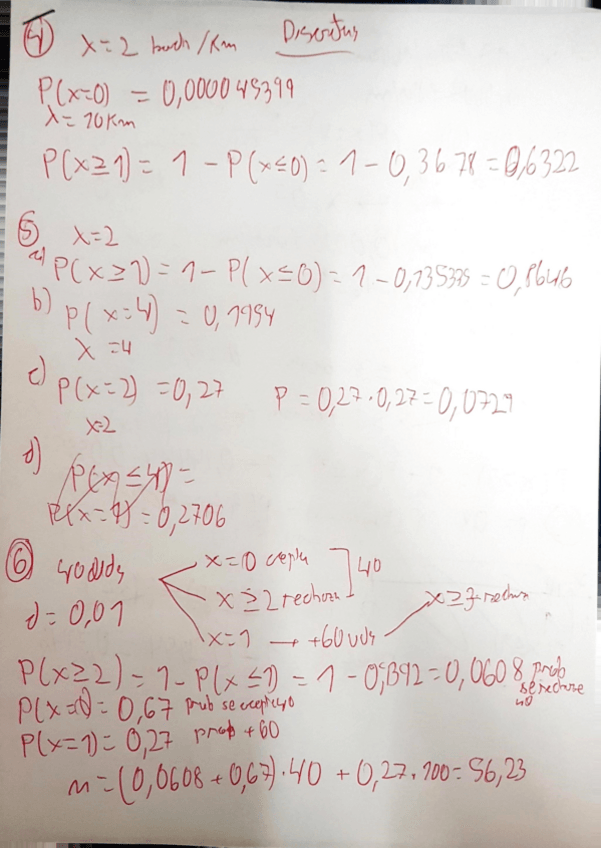 ④ λ=2 bach/Km Discretas
P(x=0) = 0,000045399
λ=10Km
P(x≥1) = 1 - P(x≤0) = 1 - 0,3678 = 0,6322
⑤ λ=2
a) P(x≥1) = 1 - P(x≤0) = 1 - 0,135335 = 0,8646
b) P(x=4) = 0,1954
λ=4
c) P(x=2) = 0,27 P = 0,27·0,27 = 0,0729
λ=2
d) P(x≤4) =
P(x=1) = 0,2706
⑥ 40 uds x=0 acepta ] 40
d=0,01 x≥2 rechaza x≥3 rechaza
x=1 → +60 uds
P(x≥2) = 1 - P(x≤1) = 1 - 0,9392 = 0,0608 prob se rechace 40
P(x=0) = 0,67 prob se acepte 40
P(x=1) = 0,27 prob +60
n = (0,0608 + 0,67)·40 + 0,27·100 = 56,23